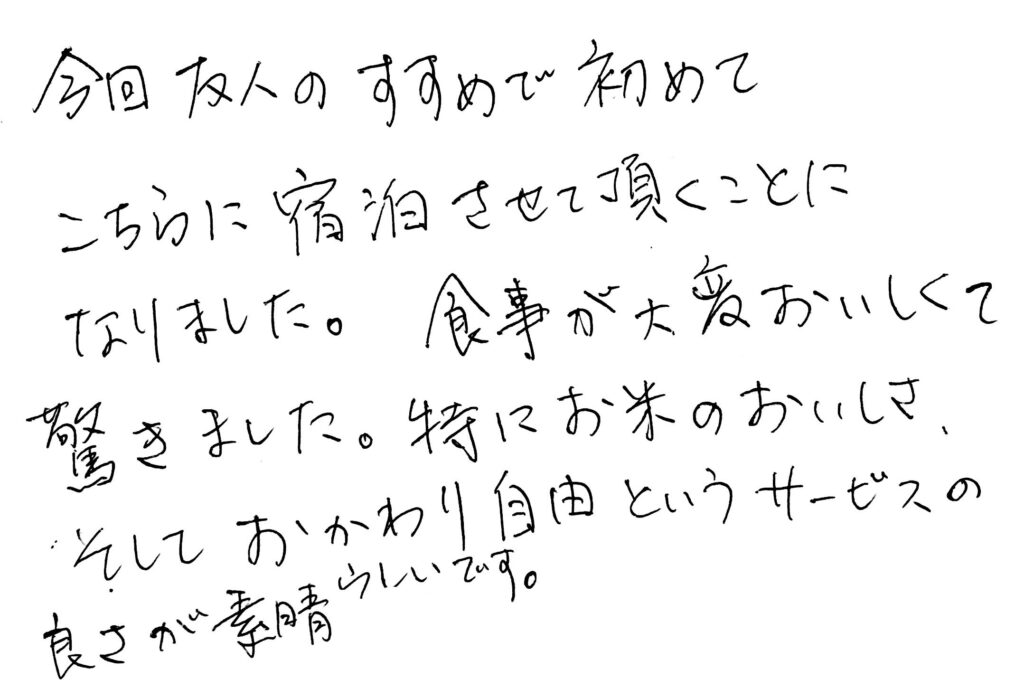 今回友人のすすめで初めて
こちらに宿泊させて頂くことに
なりました。 食事が大変おいしくて
驚きました。特にお米のおいしさ、
そしておかわり自由というサービスの
良さが素晴らしいです。